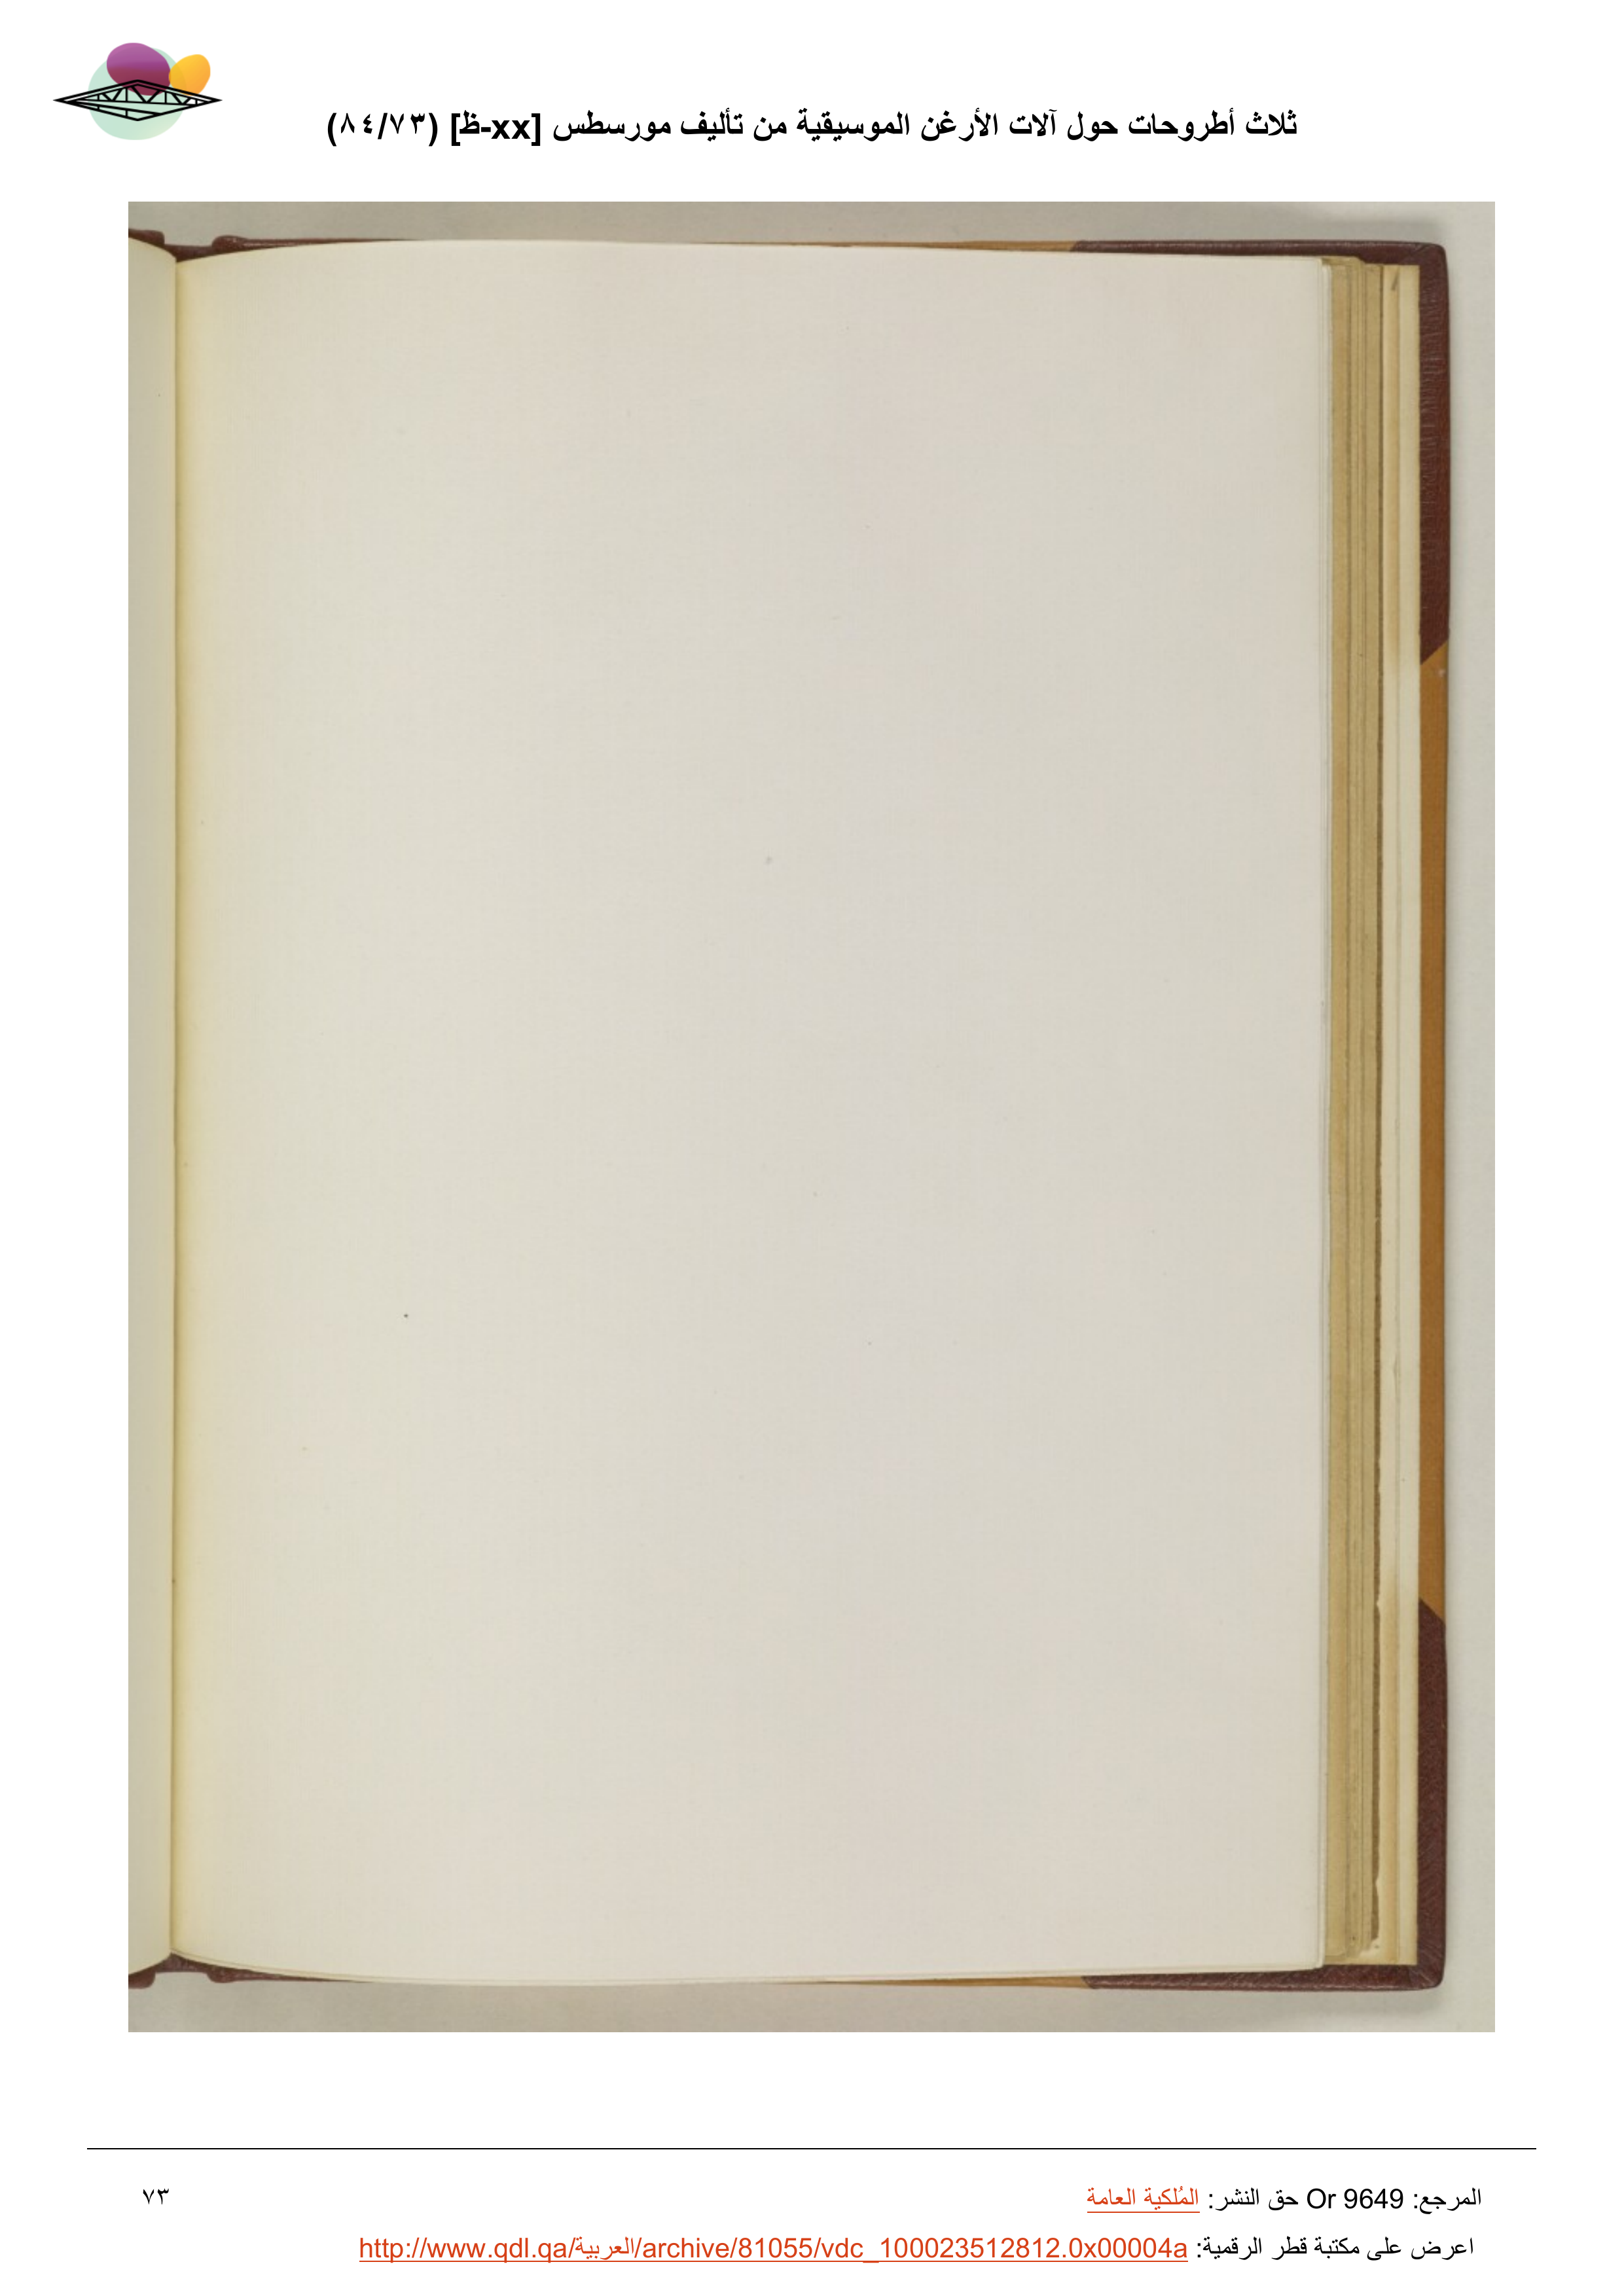 ثلاث أطروحات حول آلات الأرغن الموسيقية من تأليف مورسطس [xx-ظ] (٨٤/٧٣)
المرجع: Or 9649 حق النشر: المُلكية العامة
٧٣
اعرض على مكتبة قطر الرقمية: http://www.qdl.qa/العربية/archive/81055/vdc_100023512812.0x00004a